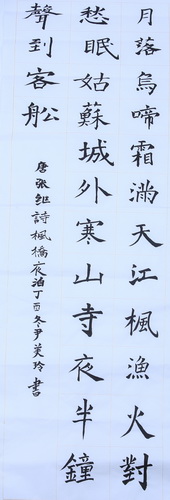 月落烏啼霜滿天江楓漁火對
愁眠姑蘇城外寒山寺夜半鐘
聲到客船
唐張繼詩楓橋夜泊丁酉冬尹美玲書